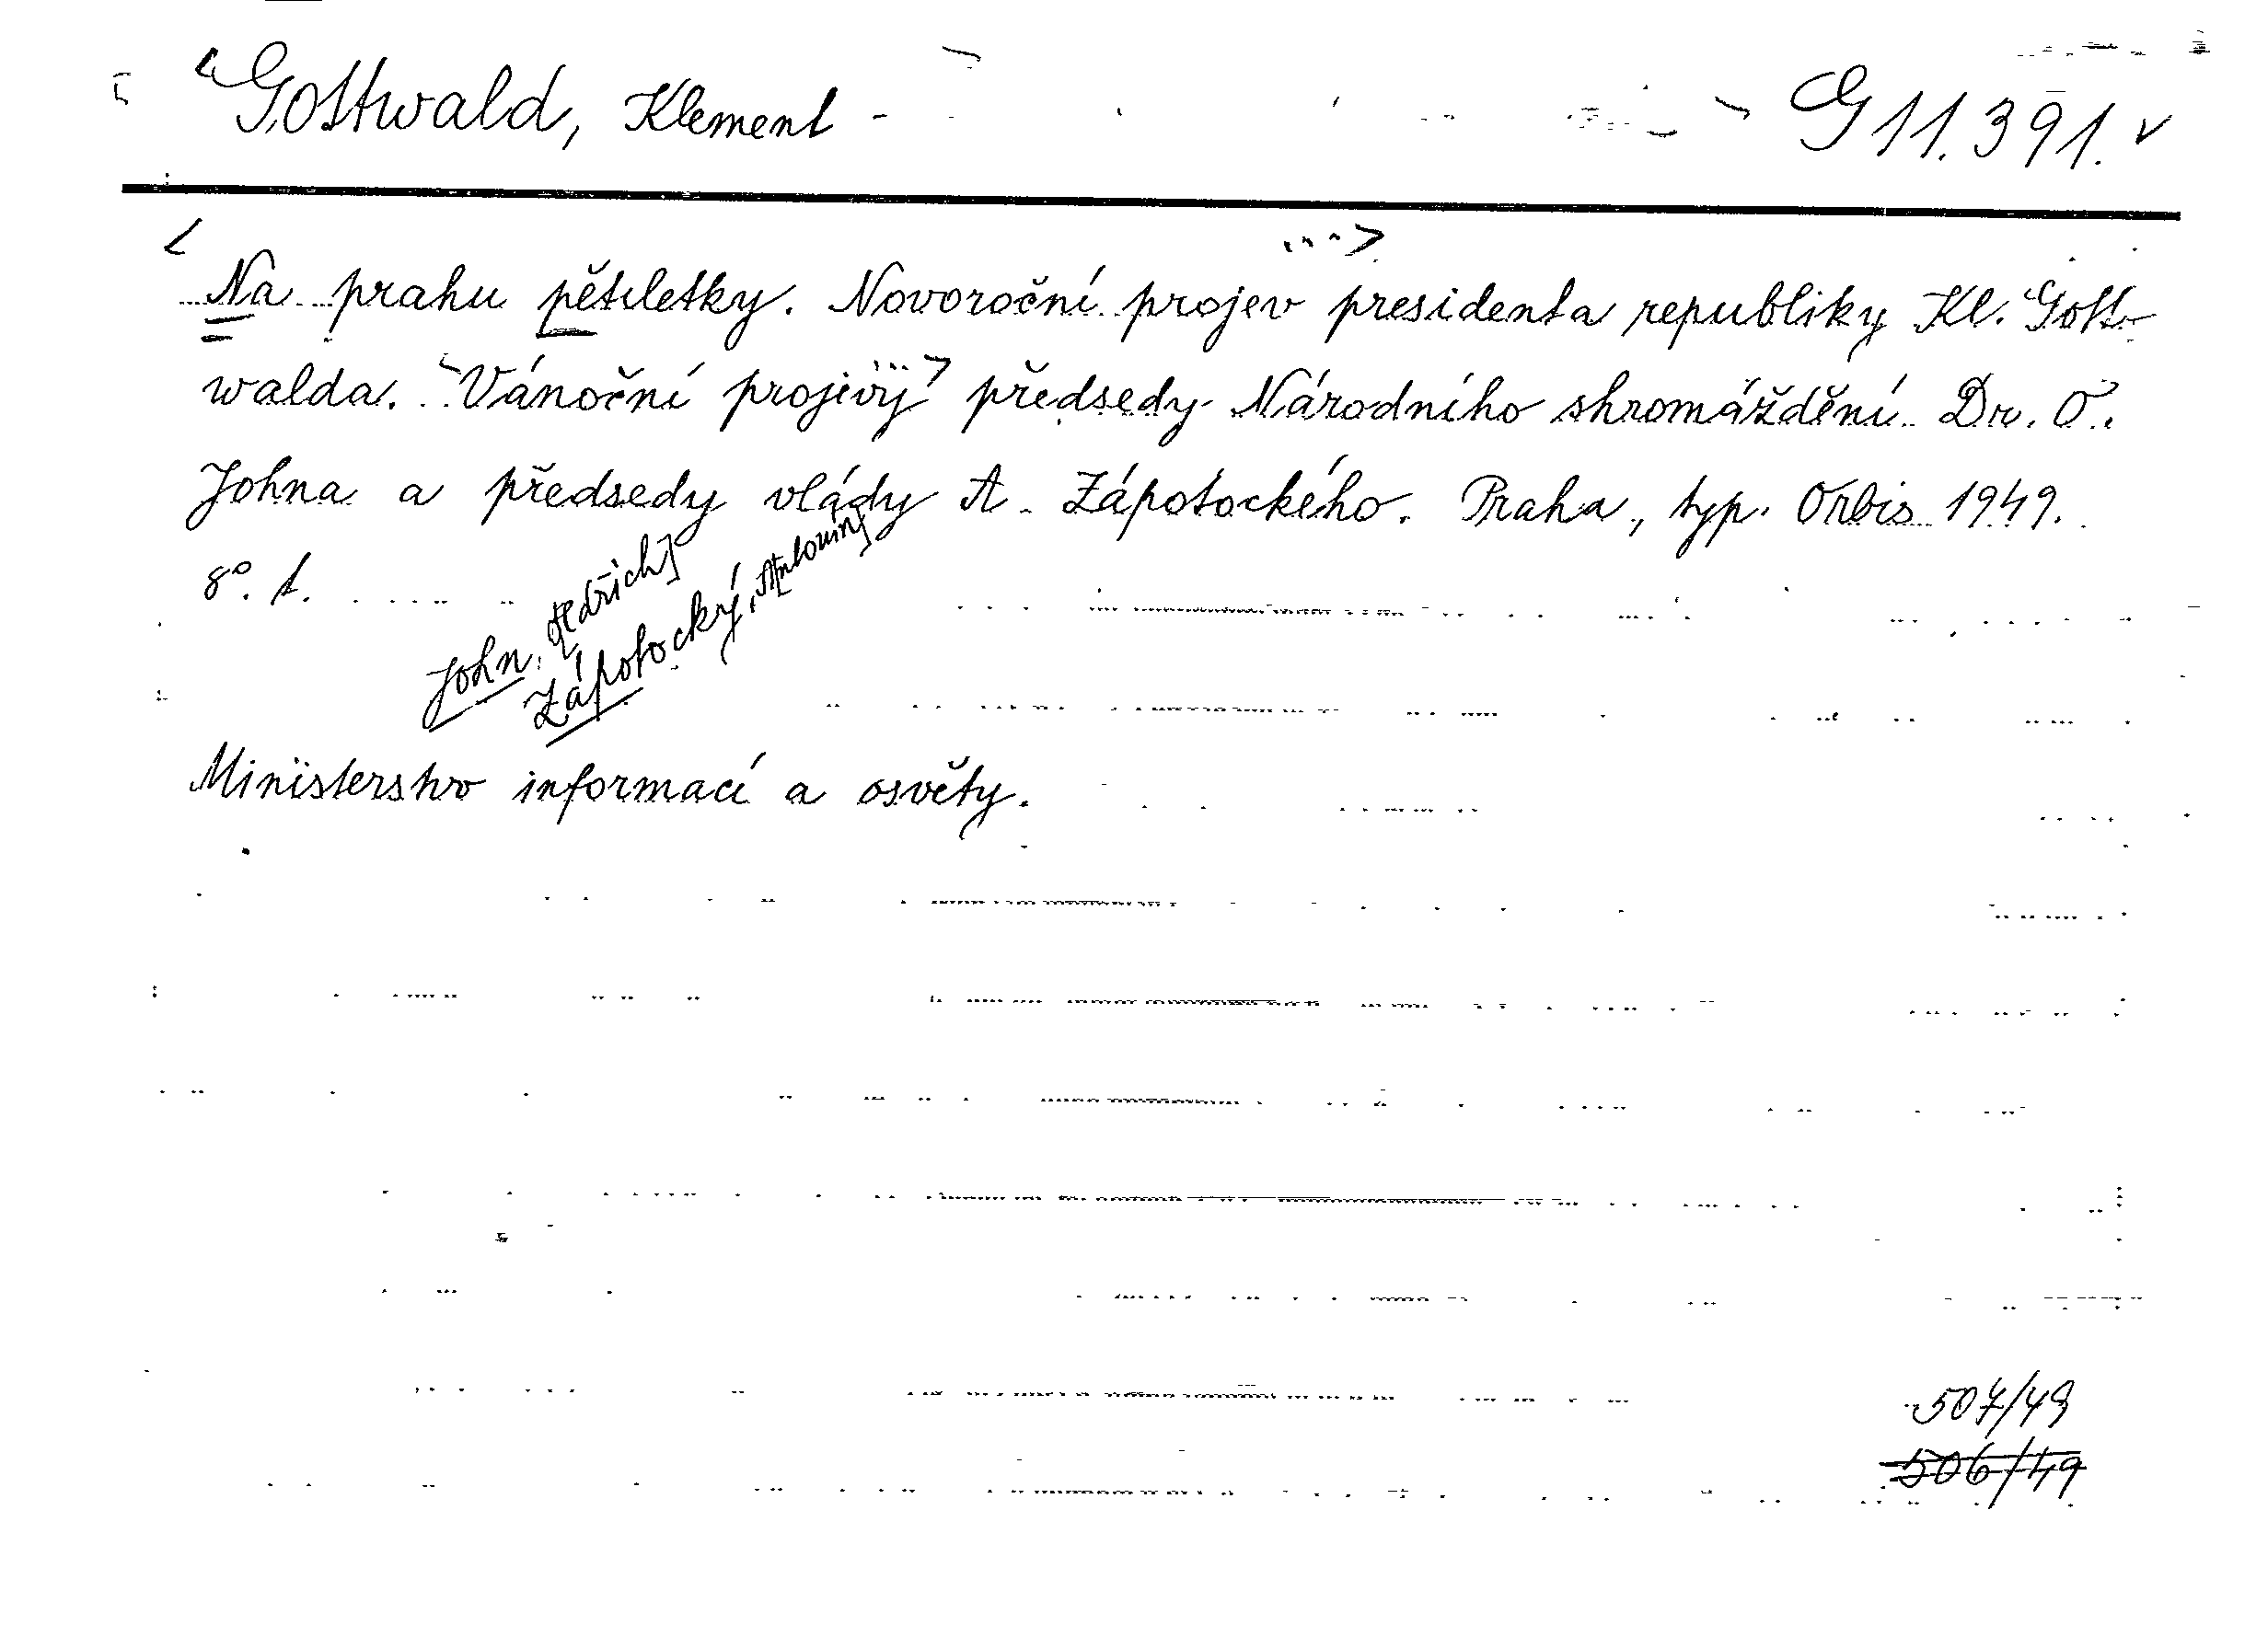 Gottwald, Klement G 11.391.
Na prahu pětiletky. Novoroční projev presidenta republiky Kl. Gott-
walda. Vánoční projevy předsedy Národního shromáždění Dr. O.
Johna a předsedy vlády A. Zápotockého. Praha, typ. Orbis 1949.
8°. s.
John, [Oldřich]
Zápotocký, [Antonín]
Ministerstvo informací a osvěty.
507/49
506/49